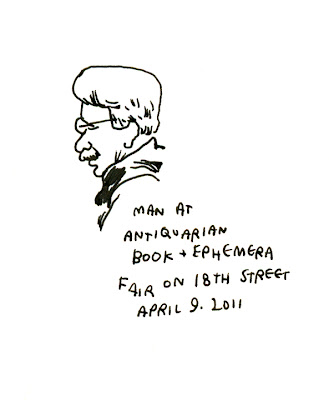 MAN AT
ANTIQUARIAN
BOOK + EPHEMERA
FAIR ON 18TH STREET
APRIL 9. 2011